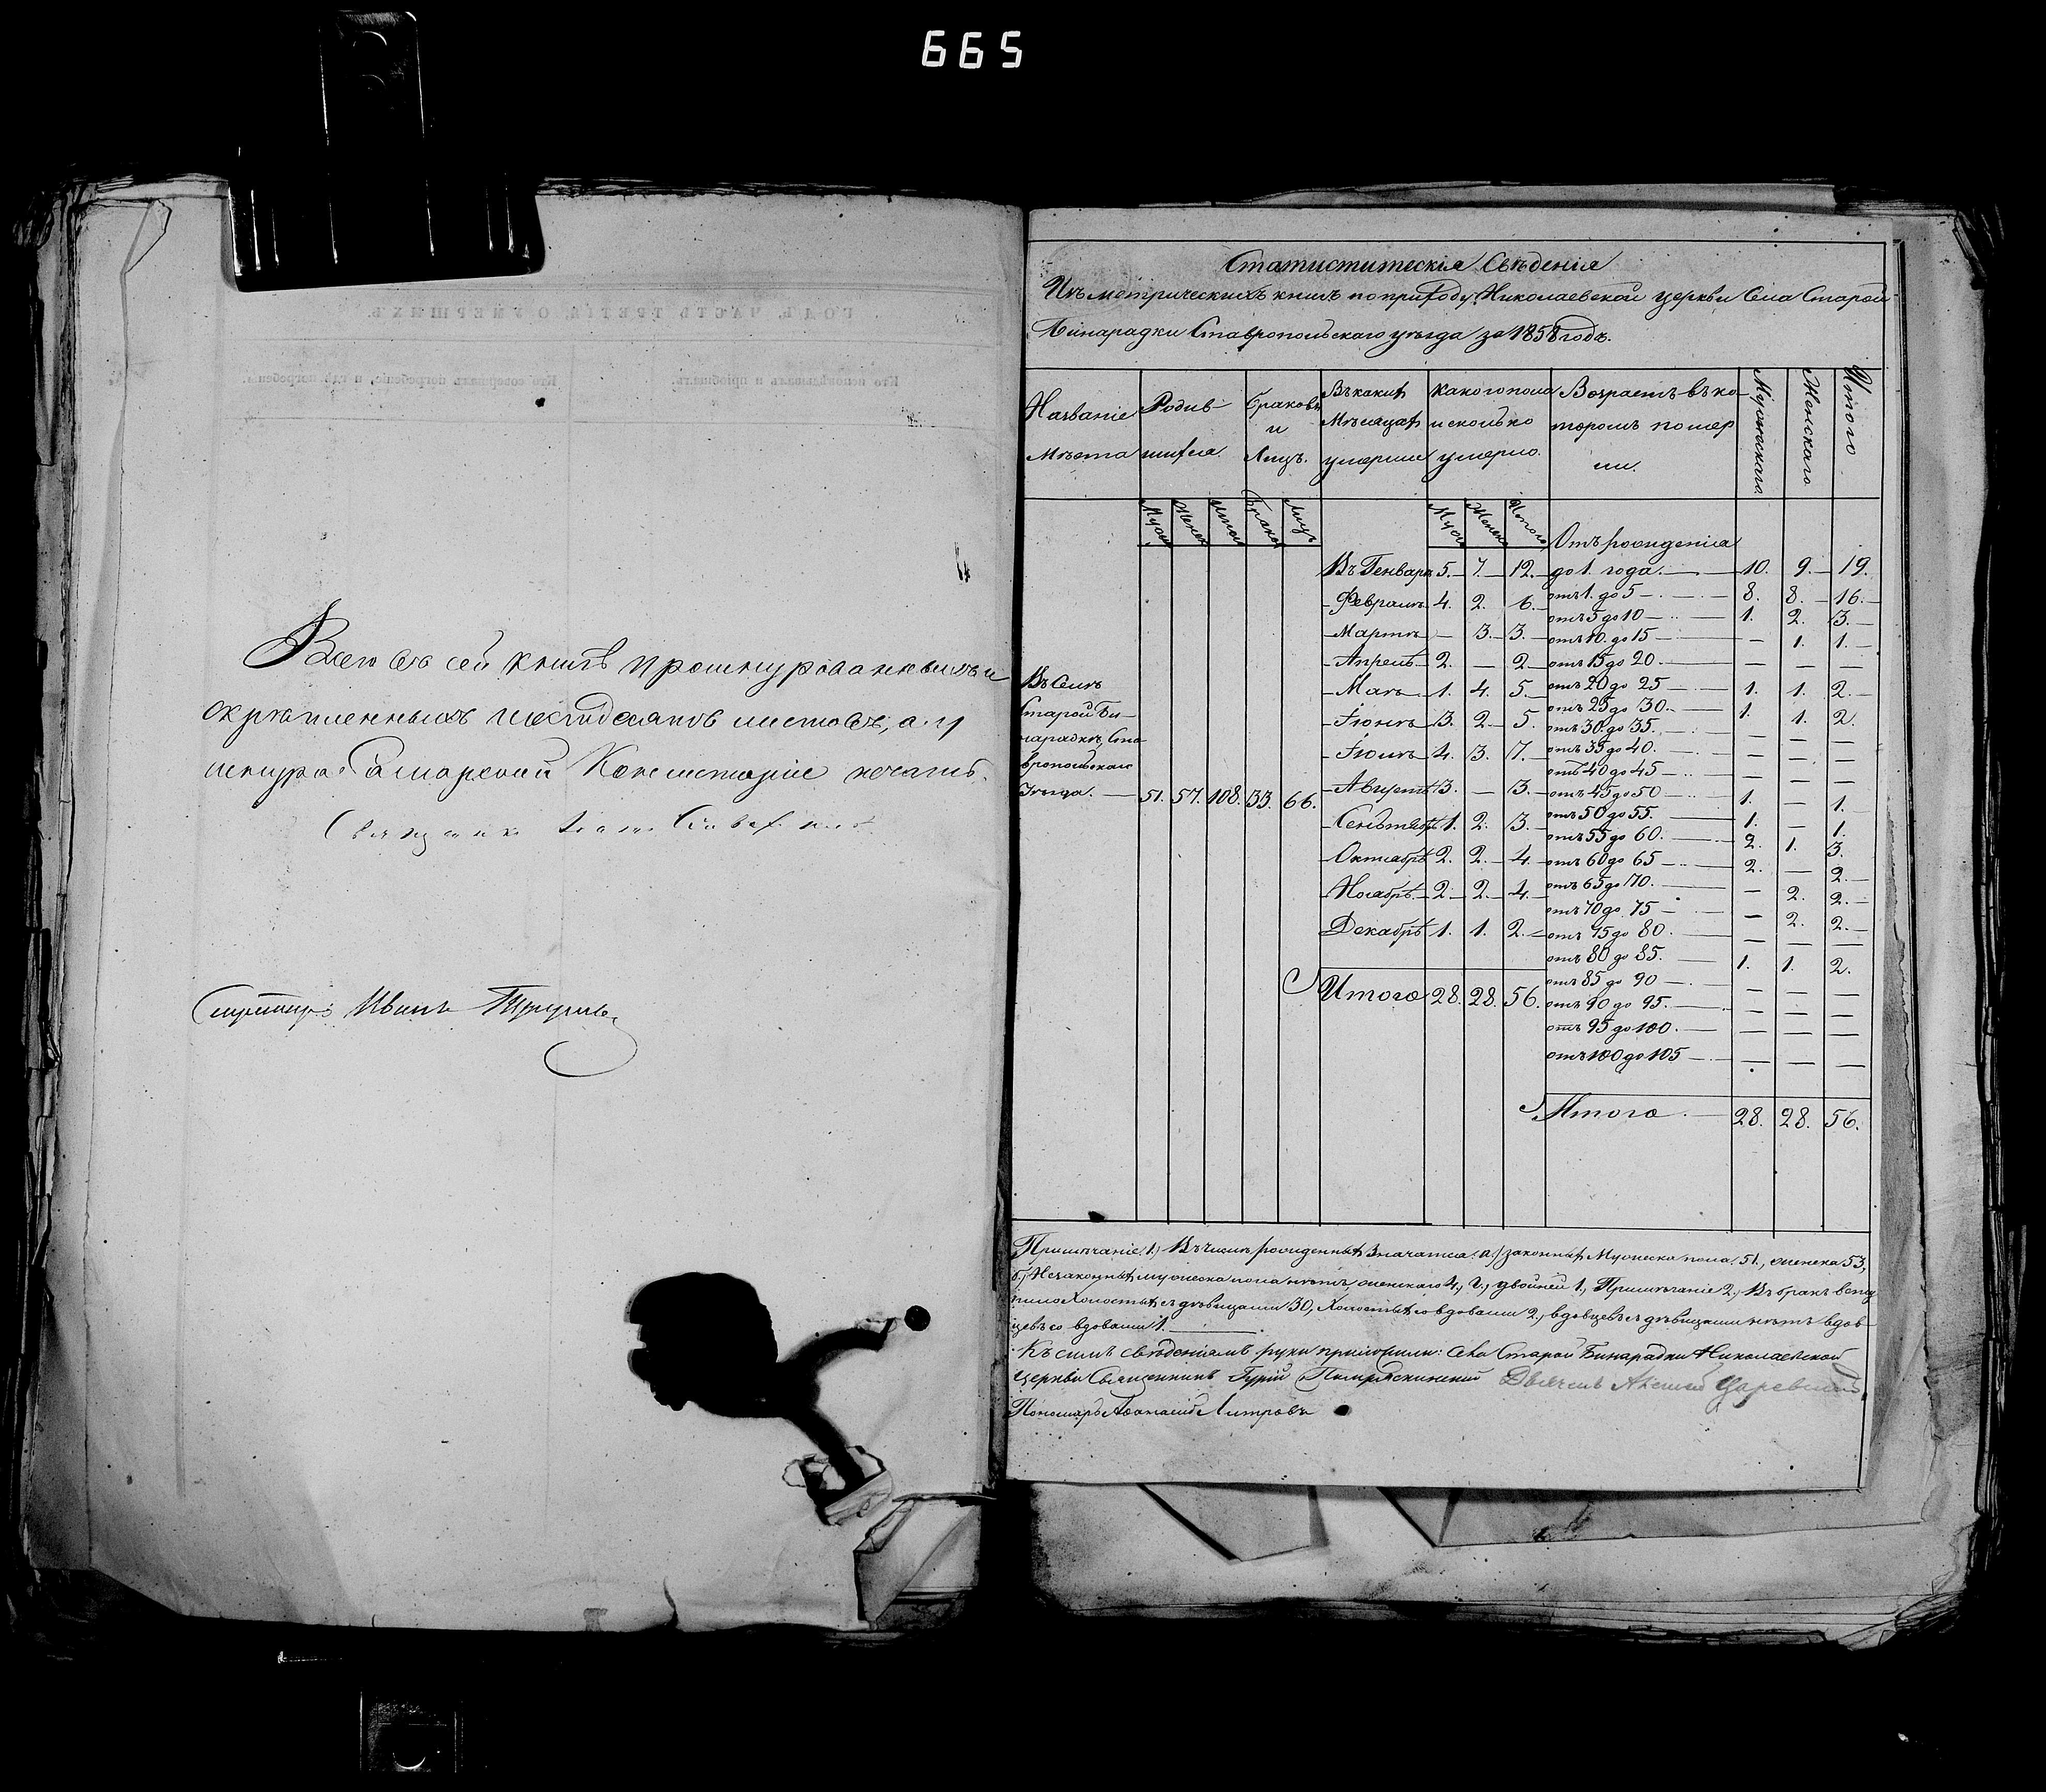 665
ГОДЪ, ЧАСТЬ ТРЕТІЯ, О УМЕРШИХЪ.
Кто исповѣдывалъ и пріобщалъ. Кто совершалъ погребеніе, и гдѣ погребены.
Всего въ сей книгѣ прошнурованныхъ и
скрѣпленныхъ шестьдесятъ листовъ, а у
шнура Самарской Консисторіи печать.
Секретарь Иванъ
Статистическія Свѣденія
Изъ метрическихъ книгъ по приходу Николаевской церкви Села Старой
Бинарадки Ставропольскаго уѣзда за 1858 годъ.
Названіе Мѣста
Родив- шихся
Браковъ и Лицъ.
Въ какихъ Мѣсяцахъ умерши
Какого пола и сколько умерло.
Возрастъ въ ко- торомъ помер ли.
Мужескаго
Женскаго
Итого
Муж. Женск. Итого Браков Лицъ Муж. Женск. Итого
Въ Селѣ
Старой Би-
нарадкѣ, Ста
вропольскаго
Уѣзда. — 51. 57. 108. 33. 66.
Въ Генварѣ 5. — 7. — 12.
Февралѣ 4. 2. 6.
Мартѣ — 3. — 3.
Апрелѣ 2. — 2.
Маѣ 1. 4. 5.
Іюнѣ 3. 2. 5.
Іюлѣ 4. 3. 7.
Августѣ 3. — 3.
Сентябрѣ 1. 2. 3.
Октябрѣ 2. 2. 4.
Ноябрѣ 2. 2. 4.
Декабрѣ 1. 1. 2.
Итого 28. 28. 56.
Отъ рожденія
до 1. года. — 10. 9. — 19.
отъ 1. до 5 — 8. 8. — 16.
отъ 5 до 10 — 1. 2. 3.
отъ 10. до 15 — — 1. 1.
отъ 15 до 20. — — — —
отъ 20 до 25 — 1. 1. 2.
отъ 25 до 30. — 1. 1. 2.
отъ 30. до 35. — — — —
отъ 35 до 40. — — — —
отъ 40 до 45 — — — —
отъ 45 до 50 — 1. — 1.
отъ 50 до 55. 1. — 1.
отъ 55 до 60. — 2. 1. 3.
отъ 60 до 65 — 2. — 2.
отъ 65 до 70. — — 2. 2.
отъ 70 до 75 — — 2. 2.
отъ 75 до 80. — — — —
отъ 80 до 85. — 1. 1. 2.
отъ 85 до 90 — — — —
отъ 90 до 95. — — — —
отъ 95 до 100. — — — —
отъ 100 до 105 — — — —
Итого — 28. 28. 56.
Примѣчаніе 1.) Въ числѣ рожденныхъ значатся: а.) законныхъ Мужеска пола 51., женска 53,
б.) Незаконныхъ мужеска пола нѣтъ, женскаго 4., двойней 1., Примѣчаніе 2.) Въ бракъ всту
пило Холостыхъ съ дѣвицами 30, Холостыхъ со вдовами 2., вдовцевъ съ дѣвицами нѣтъ вдов-
цевъ со вдовами 1.
Къ симъ свѣденіямъ руки приложили: Села Старой Бинарадки Николаевской
церкви Священникъ Гурій Дьячекъ Алексѣй Царевскій
Пономарь Афанасій